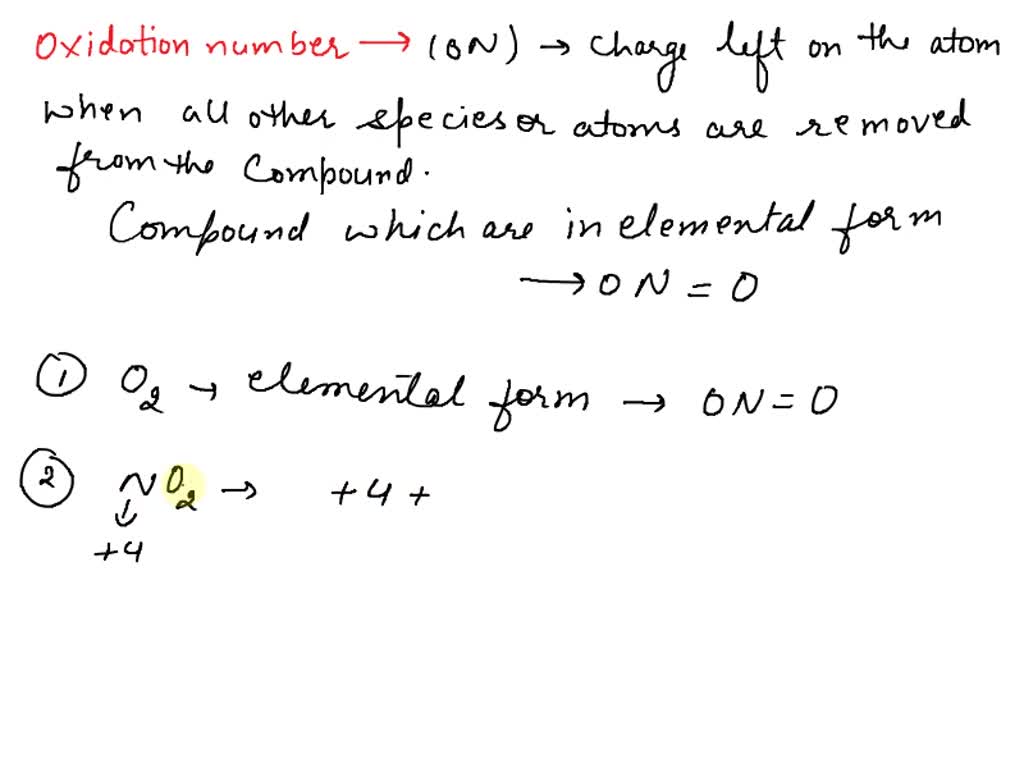 Oxidation number → (ON) → charge left on the atom
when all other species or atoms are removed
from the compound.
Compound which are in elemental form
→ ON = 0
① O₂ → elemental form → ON = 0
② NO₂ → +4 +
↓
+4